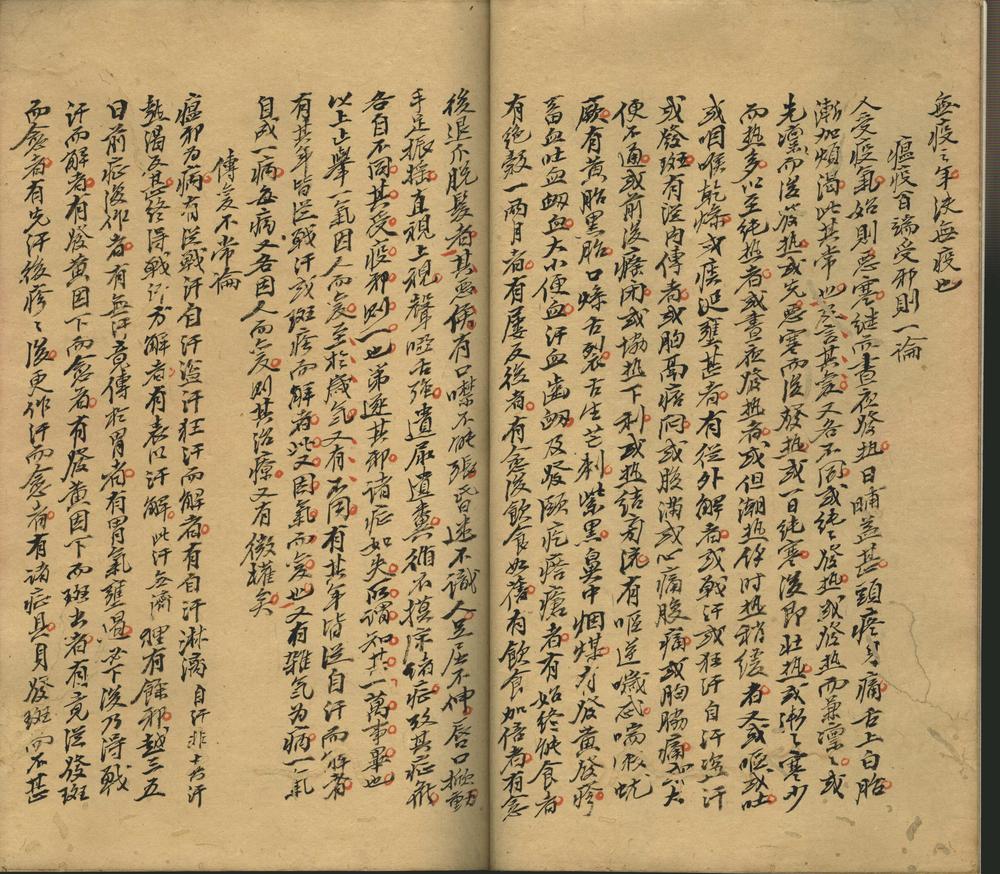 無疫之年決無疫也
瘟疫百端受邪則一論
人受疫氣始則惡寒繼而晝夜發熱日晡益甚頭疼身痛舌上白胎
漸加煩渴此其常也 言其變又各不同或純純發熱或發熱而兼凜凜或
先凜而後發熱或先惡寒而後發熱或一日純寒後即壯熱或漸漸寒少
而熱多以至純熱者或晝夜發熱者或但潮熱餘時熱稍緩者又或嘔或吐
或咽喉乾燥或痰涎壅甚者有從外解者或戰汗或狂汗自汗盜汗
或發斑有從內傳者或胸膈痞悶或腹滿或心痛腹痛或胸脇痛或大
便不通或前後癃閉或協熱下利或熱結旁流有嘔逆噦 喘 蚘
厥有黃胎黑胎口燥舌裂舌生芒刺紫黑鼻中烟煤有發黃發疹
蓄血吐血衂血大小便血汗血齒衂及發頤疙瘩瘡者有始終能食者
有絕穀一兩月者有屢反復者有愈後飲食如舊有飲食加倍者有愈
後退爪脫髮者其惡候有口噤不能張昏迷不識人足屈不伸唇口振動
手足振搖直視上視聲啞舌強遺尿遺糞循衣摸床諸症 其症 
各自不同其受疫邪則一也第逐其邪諸症如失所謂知其一萬事畢也
以上止舉一氣因人而變至於歲氣又有不同有某年皆從自汗而解者
有某年皆從戰汗或斑疹而解者此又因氣而變也又有雜氣為病一氣
自成一病每病又各因人而變則其治療又有微權矣
傳變不常論
瘟邪為病有從戰汗自汗盜汗狂汗而解者有自汗淋漓自汗非 汗
熱渴反甚終得戰汗方解者有表以汗解此汗無濟裡有餘邪越三五
日前症復作者有無汗竟傳於胃者有胃氣壅遏必下後乃得戰
汗而解者有發黃因下而愈者有發黃因下而斑出者有竟從發斑
而愈者有先汗後疹疹後更作汗而愈者有諸症具見發斑而不甚